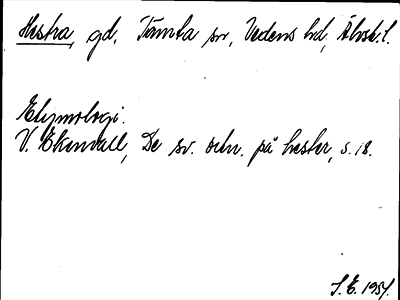 Hestra, gd, Tämta sn, Vedens hd, Älvsb. l.
Etymologi.
V. Ekenvall, De sv. ortn. på hester, s. 18.
S.E. 1954.